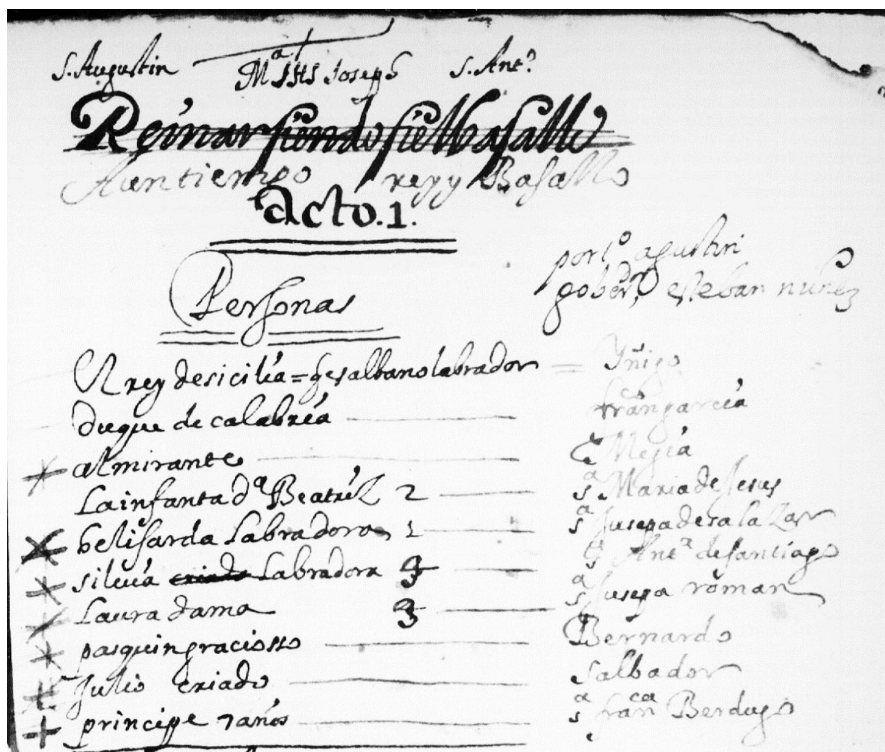 S. Augustin Mª JHS Joseph S. Antº
Reinar siendo fiel basallo
A un tiempo rey y Basallo
acto. 1.
por tº agustin
gober.ᵒʳ esteban nuñez
Personas
El rey de sicilia = labrador = Yñigo
duque de calabria — fran garcia
almirante — Mejia
La infanta dª Beatriz 2 — sª Maria de Jesus
belisarda Labradora 1 — sª Jusepa de salazar
silvia criado Labradora 3 — sª Antª de santiago
Laura dama 3 — sª Jusepa roman
pasquin graciosso — Bernardo
Julio criado — salbador
principe 7 años — sª franᶜᵃ Berdugo